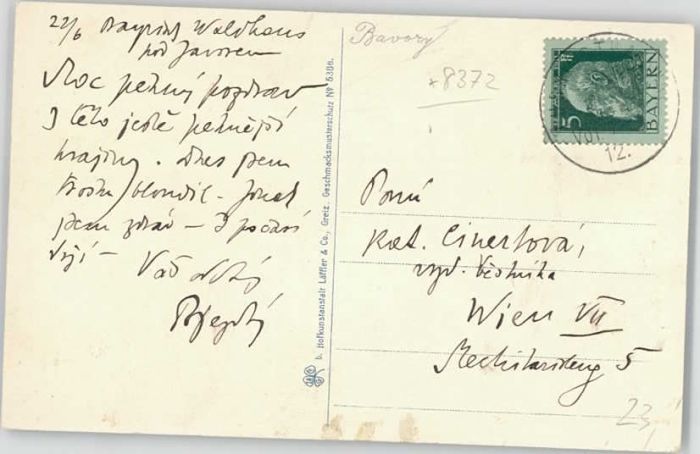 22/6 Bayrisch Waldhaus
pod Javorem
Moc pěkný pozdrav
z této ještě pěknější
krajiny. Dnes jsem
trochu bloudil. Jinak
jsem zdráv – I počasí
Váš
b. Hofkunstanstalt Löffler & Co., Greiz. Geschmacksmusterschutz No 5386.
Bavory
+8372
5
BAYERN
12.
Paní
Kat. Cinertová,
vyd. věstníka
Wien VII
Mechitaristeng 5
23